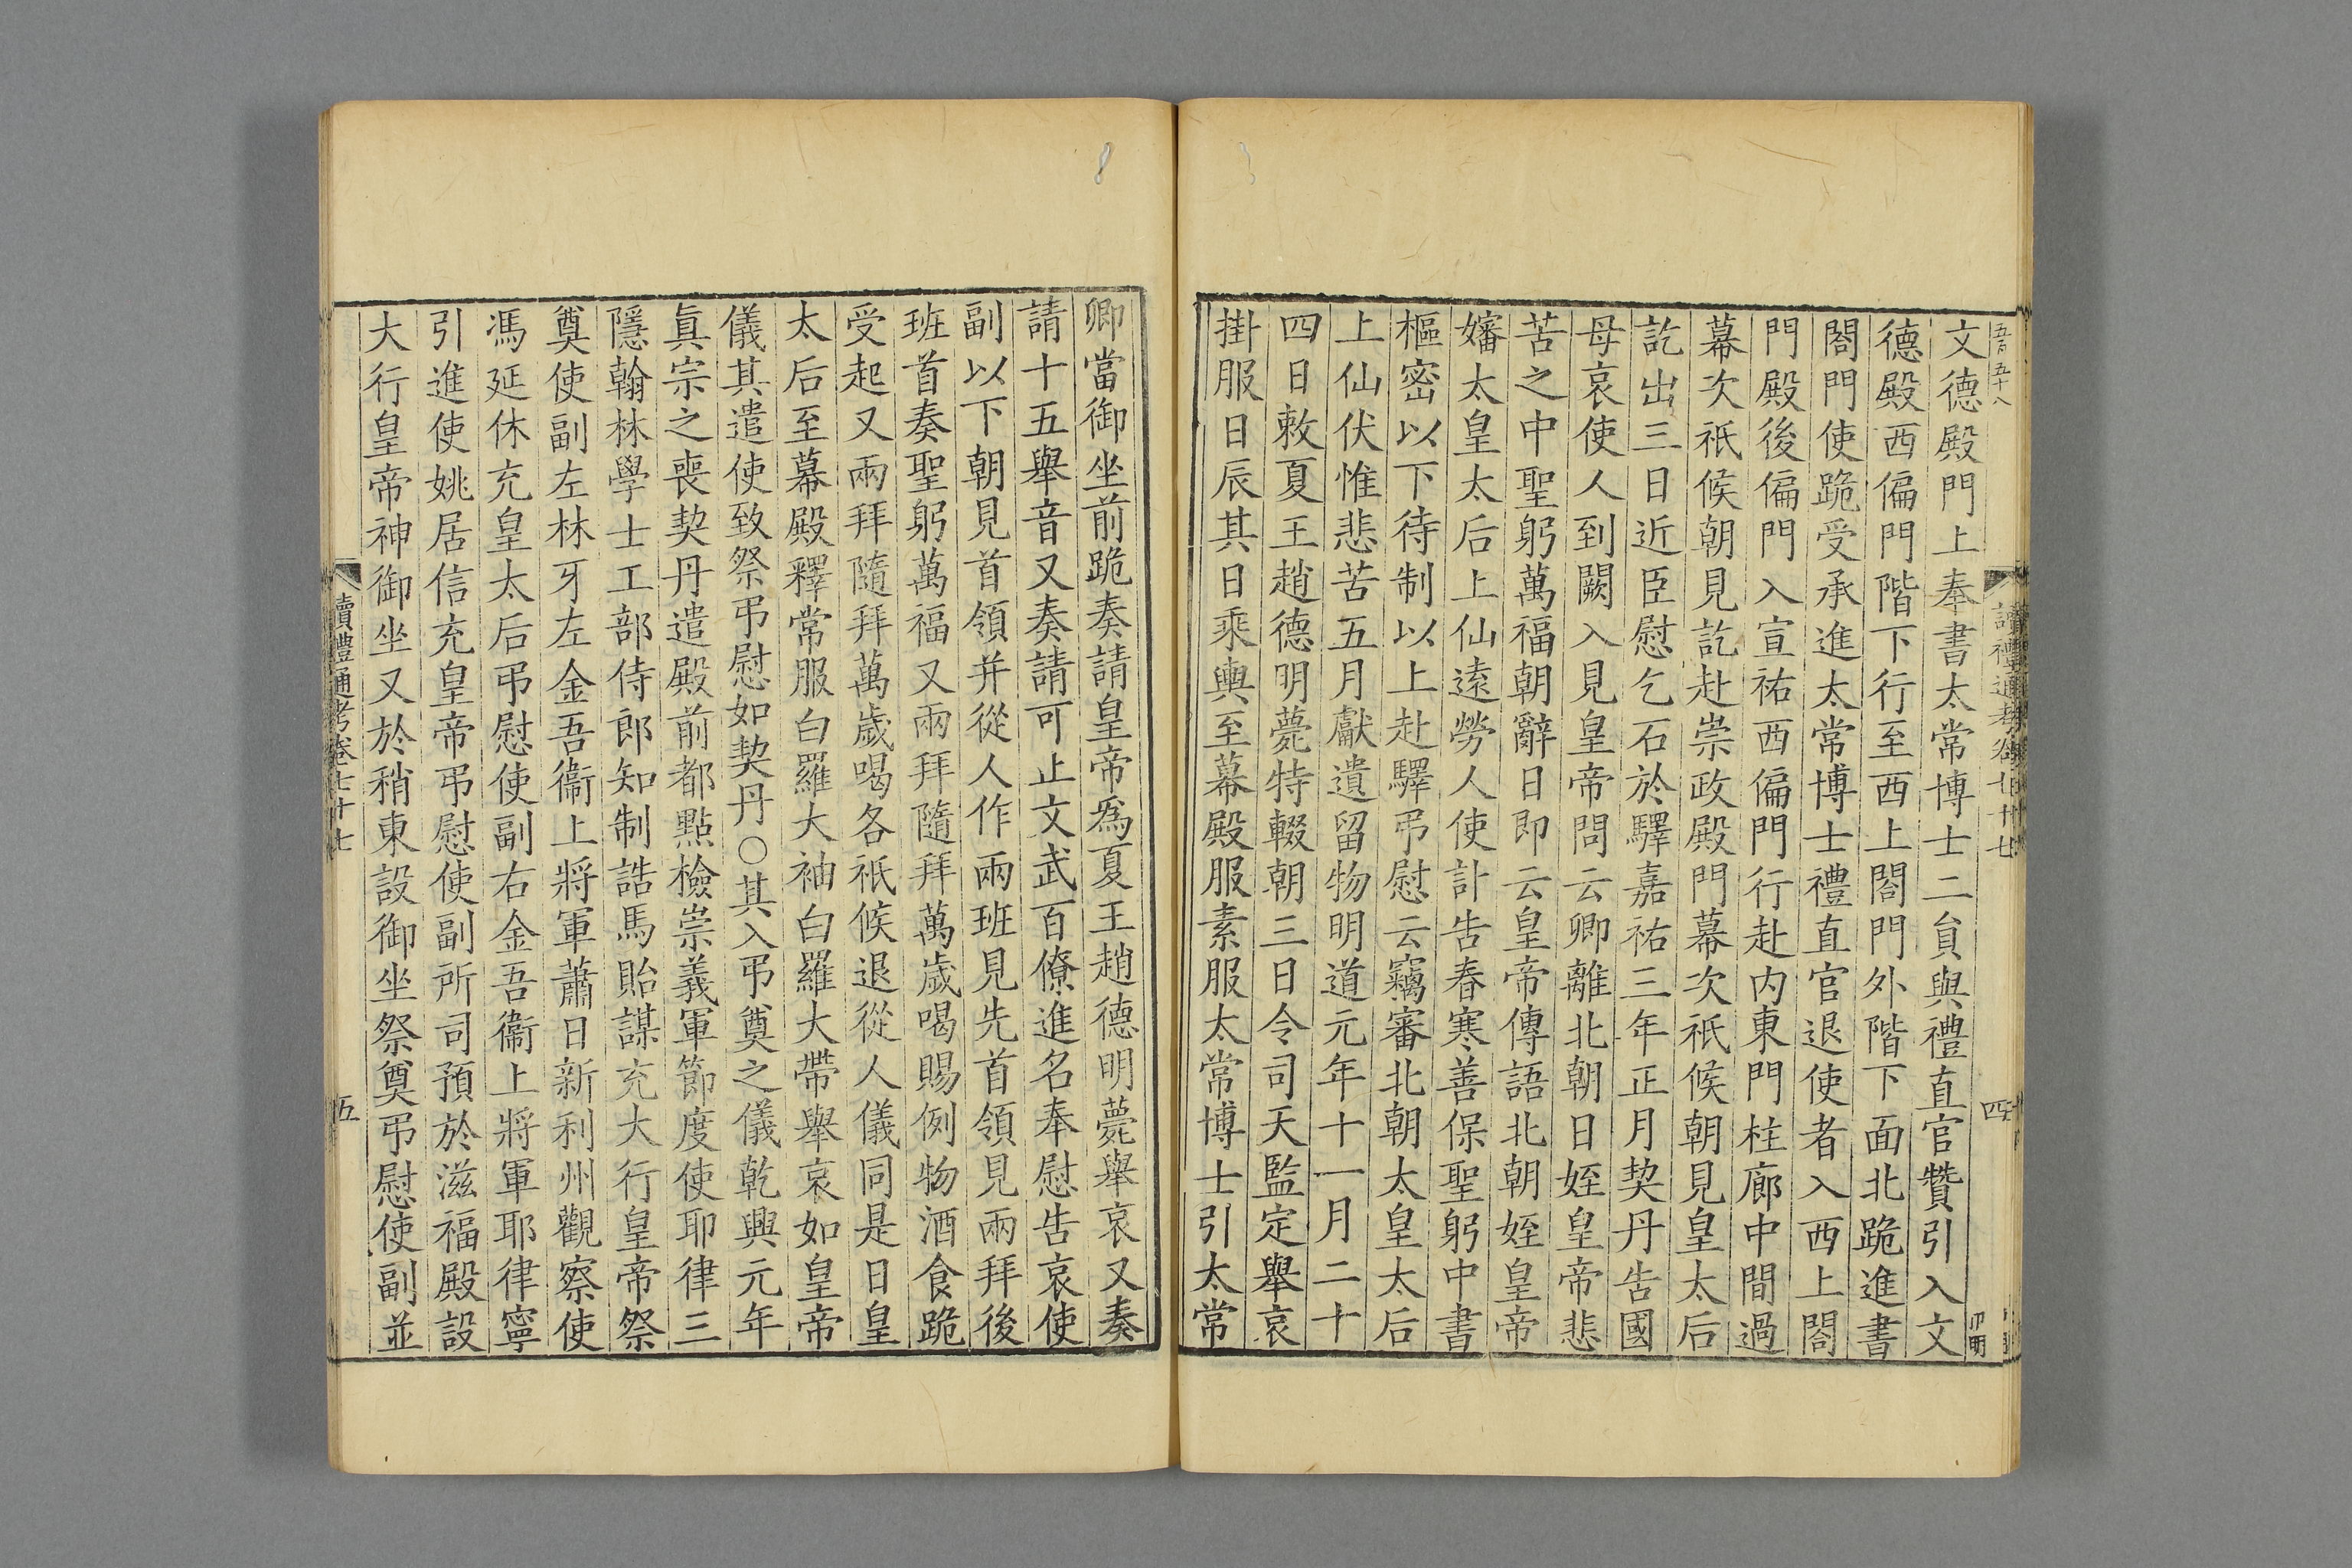 讀禮通考卷七十七
四
文德殿門上奉書太常博士二貟與禮直官贊引入文
德殿西偏門階下行至西上閤門外階下面北跪進書
閤門使跪受承進太常博士禮直官退使者入西上閤
門殿後偏門入宣祐西偏門行赴内東門柱廊中間過
幕次祇候朝見訖赴崇政殿門幕次祇候朝見皇太后
訖出三日近臣慰乞石於驛嘉祐三年正月契丹告國
母哀使人到闕入見皇帝問云卿離北朝日姪皇帝悲
苦之中聖躬萬福朝辭日即云皇帝傳語北朝姪皇帝
嬸太皇太后上仙遠勞人使訃告春寒善保聖躬中書
樞密以下待制以上赴驛弔慰云竊審北朝太皇太后
上仙伏惟悲苦五月獻遺留物明道元年十一月二十
四日敕夏王趙德明薨特輟朝三日令司天監定舉哀
掛服日辰其日乘輿至幕殿服素服太常博士引太常
卿當御坐前跪奏請皇帝爲夏王趙德明薨舉哀又奏
請十五舉音又奏請可止文武百僚進名奉慰告哀使
副以下朝見首領并從人作兩班見先首領見兩拜後
班首奏聖躬萬福又兩拜隨拜萬歲喝賜例物酒食跪
受起又兩拜隨拜萬歲喝各祇候退從人儀同是日皇
太后至幕殿釋常服白羅大袖白羅大帶舉哀如皇帝
儀其遣使致祭弔慰如契丹○其入弔奠之儀乾興元年
眞宗之喪契丹遣殿前都點檢崇義軍節度使耶律三
隱翰林學士工部侍郎知制誥馬貽謀充大行皇帝祭
奠使副左林牙左金吾衞上將軍蕭日新利州觀察使
馮延休充皇太后弔慰使副右金吾衞上將軍耶律寧
引進使姚居信充皇帝弔慰使副所司預於滋福殿設
大行皇帝神御坐又於稍東設御坐祭奠弔慰使副並
讀禮通考卷七十七
五